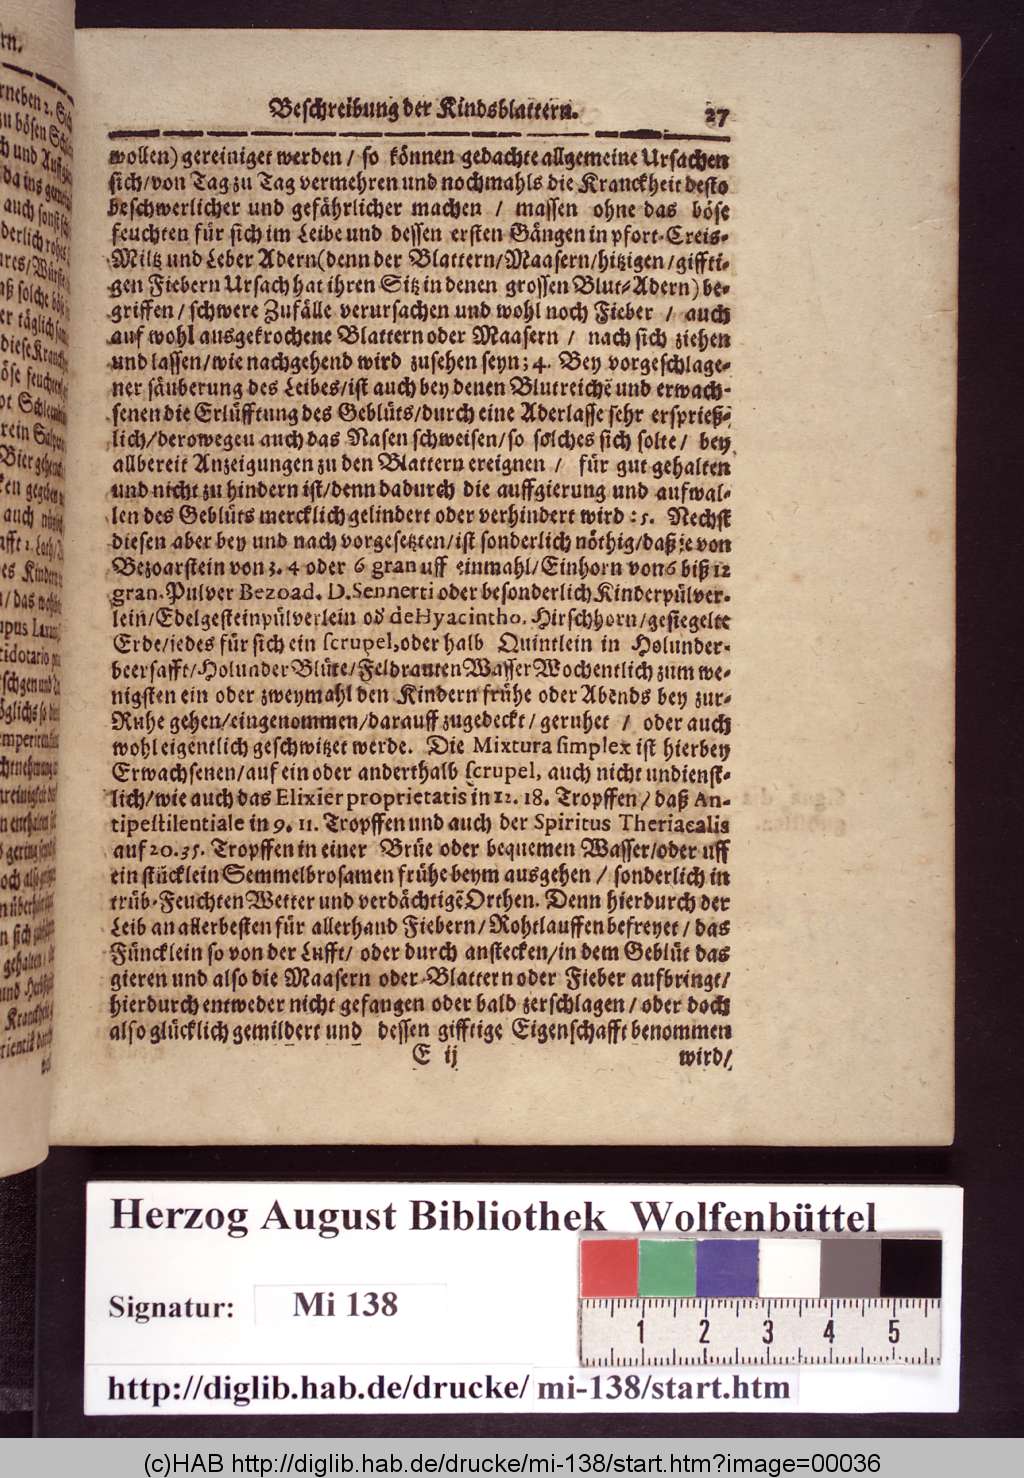 Beschreibung der Kindsblattern. 27
wollen) gereiniget werden / so können gedachte allgemeine Ursachen
sich/von Tag zu Tag vermehren und nochmahls die Kranckheit desto
beschwerlicher und gefährlicher machen / massen ohne das böse
feuchten für sich im Leibe und dessen ersten Gängen in pfort-Creis-
Miltz und Leber Adern(denn der Blattern/Maasern/hitzigen/giffti-
gen Fiebern Ursach hat ihren Sitz in denen grossen Blut-Adern) be-
griffen / schwere Zufälle verursachen und wohl noch Fieber / auch
auf wohl ausgekrochene Blattern oder Maasern / nach sich ziehen
und lassen/wie nachgehend wird zusehen seyn; 4. Bey vorgeschlage-
ner säuberung des Leibes/ist auch bey denen Blutreichẽ und erwach-
senen die Erlüfftung des Geblüts/durch eine Aderlasse sehr ersprieß-
lich/derowegen auch das Nasen schweisen/so solches sich solte/ bey
allbereit Anzeigungen zu den Blattern ereignen / für gut gehalten
und nicht zu hindern ist/denn dadurch die auffgierung und aufwal-
len des Geblüts mercklich gelindert oder verhindert wird : 5. Nechst
diesen aber bey und nach vorgesetzten/ist sonderlich nöthig/daß je von
Bezoarstein von 3. 4 oder 6 gran uff einmahl/Einhorn von 6 biß 12
gran. Pulver Bezoad. D. Sennerti oder besonderlich Kinderpülver-
lein/Edelgesteinpülverlein od̃ de Hyacintho, Hirschhorn/gesiegelte
Erde/jedes für sich ein scrupel,oder halb Quintlein in Holunder-
beersafft/Holunder Blüte/Feldrauten Wasser Wochentlich zum we-
nigsten ein oder zweymahl den Kindern frühe oder Abends bey zur-
Ruhe gehen/eingenommen/darauff zugedeckt/ geruhet / oder auch
wohl eigentlich geschwitzet werde. Die Mixtura simplex ist hierbey
Erwachsenen/auf ein oder anderthalb scrupel, auch nicht undienst-
lich/wie auch das Elixier proprietatis in 12. 18. Tropffen / daß An-
tipestilentiale in 9. 11. Tropffen und auch der Spiritus Theriacalis
auf 20.35. Tropffen in einer Brüe oder bequemen Wasser/oder uff
ein stücklein Semmelbrosamen frühe beym ausgehen / sonderlich in
trüb-Feuchten Wetter und verdächtigẽ Orthen. Denn hierdurch der
Leib an allerbesten für allerhand Fiebern/ Rohtlauffen befreyet / das
Füncklein so von der Lufft/ oder durch anstecken/in dem Geblüt das
gieren und also die Maasern oder-Blattern oder Fieber aufbringt/
hierdurch entweder nicht gefangen oder bald zerschlagen / oder doch
also glücklich gemildert und dessen gifftige Eigenschafft benommen
E ij wird/
Herzog August Bibliothek Wolfenbüttel
Signatur: Mi 138
1 2 3 4 5
http://diglib.hab.de/drucke/ mi-138/start.htm
(c)HAB http://diglib.hab.de/drucke/mi-138/start.htm?image=00036